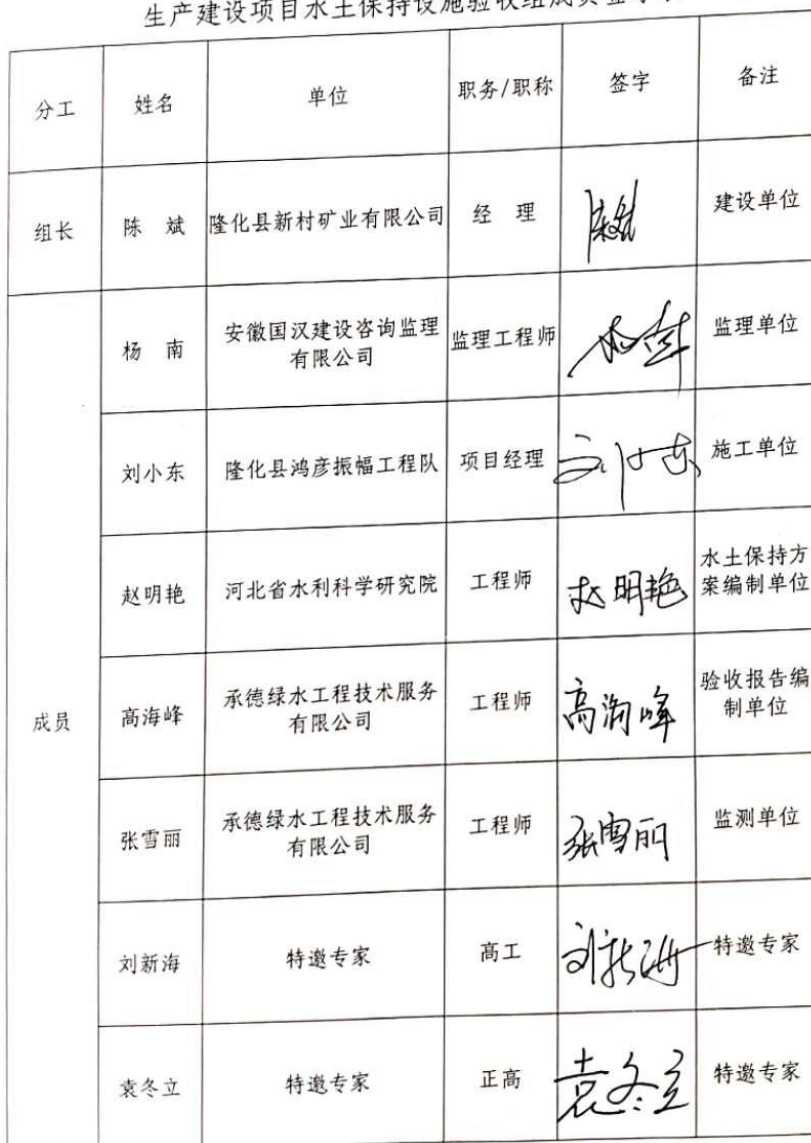 生产建设项目水土保持设施验收组成员签字
分工 姓名 单位 职务/职称 签字 备注
组长 陈 斌 隆化县新村矿业有限公司 经 理 陈斌 建设单位
杨 南 安徽国汉建设咨询监理 监理工程师 监理单位
有限公司
刘小东 隆化县鸿彦振幅工程队 项目经理 刘小东 施工单位
赵明艳 河北省水利科学研究院 工程师 赵明艳 水土保持方
案编制单位
成员 高海峰 承德绿水工程技术服务 工程师 高海峰 验收报告编
有限公司 制单位
张雪丽 承德绿水工程技术服务 工程师 张雪丽 监测单位
有限公司
刘新海 特邀专家 高工 刘新海 特邀专家
袁冬立 特邀专家 正高 袁冬立 特邀专家